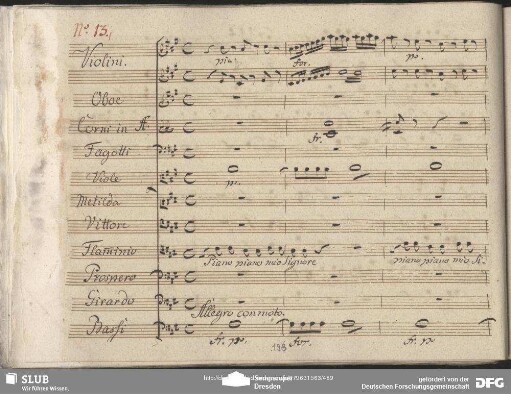 No. 13.
Violini.
pia: for. po.
Oboe
Corni in A#
fr.
Fagotti
Viole
p.
Metilda
Vittore
Flaminio
Piano piano mio Signore piano piano mio Si-
Prospero
Girardo
Allegro con moto.
Bassi
fr. po. for. fr. po.
198
SLUB
Wir führen Wissen.
Dresden
gefördert von der
Deutschen Forschungsgemeinschaft
DFG